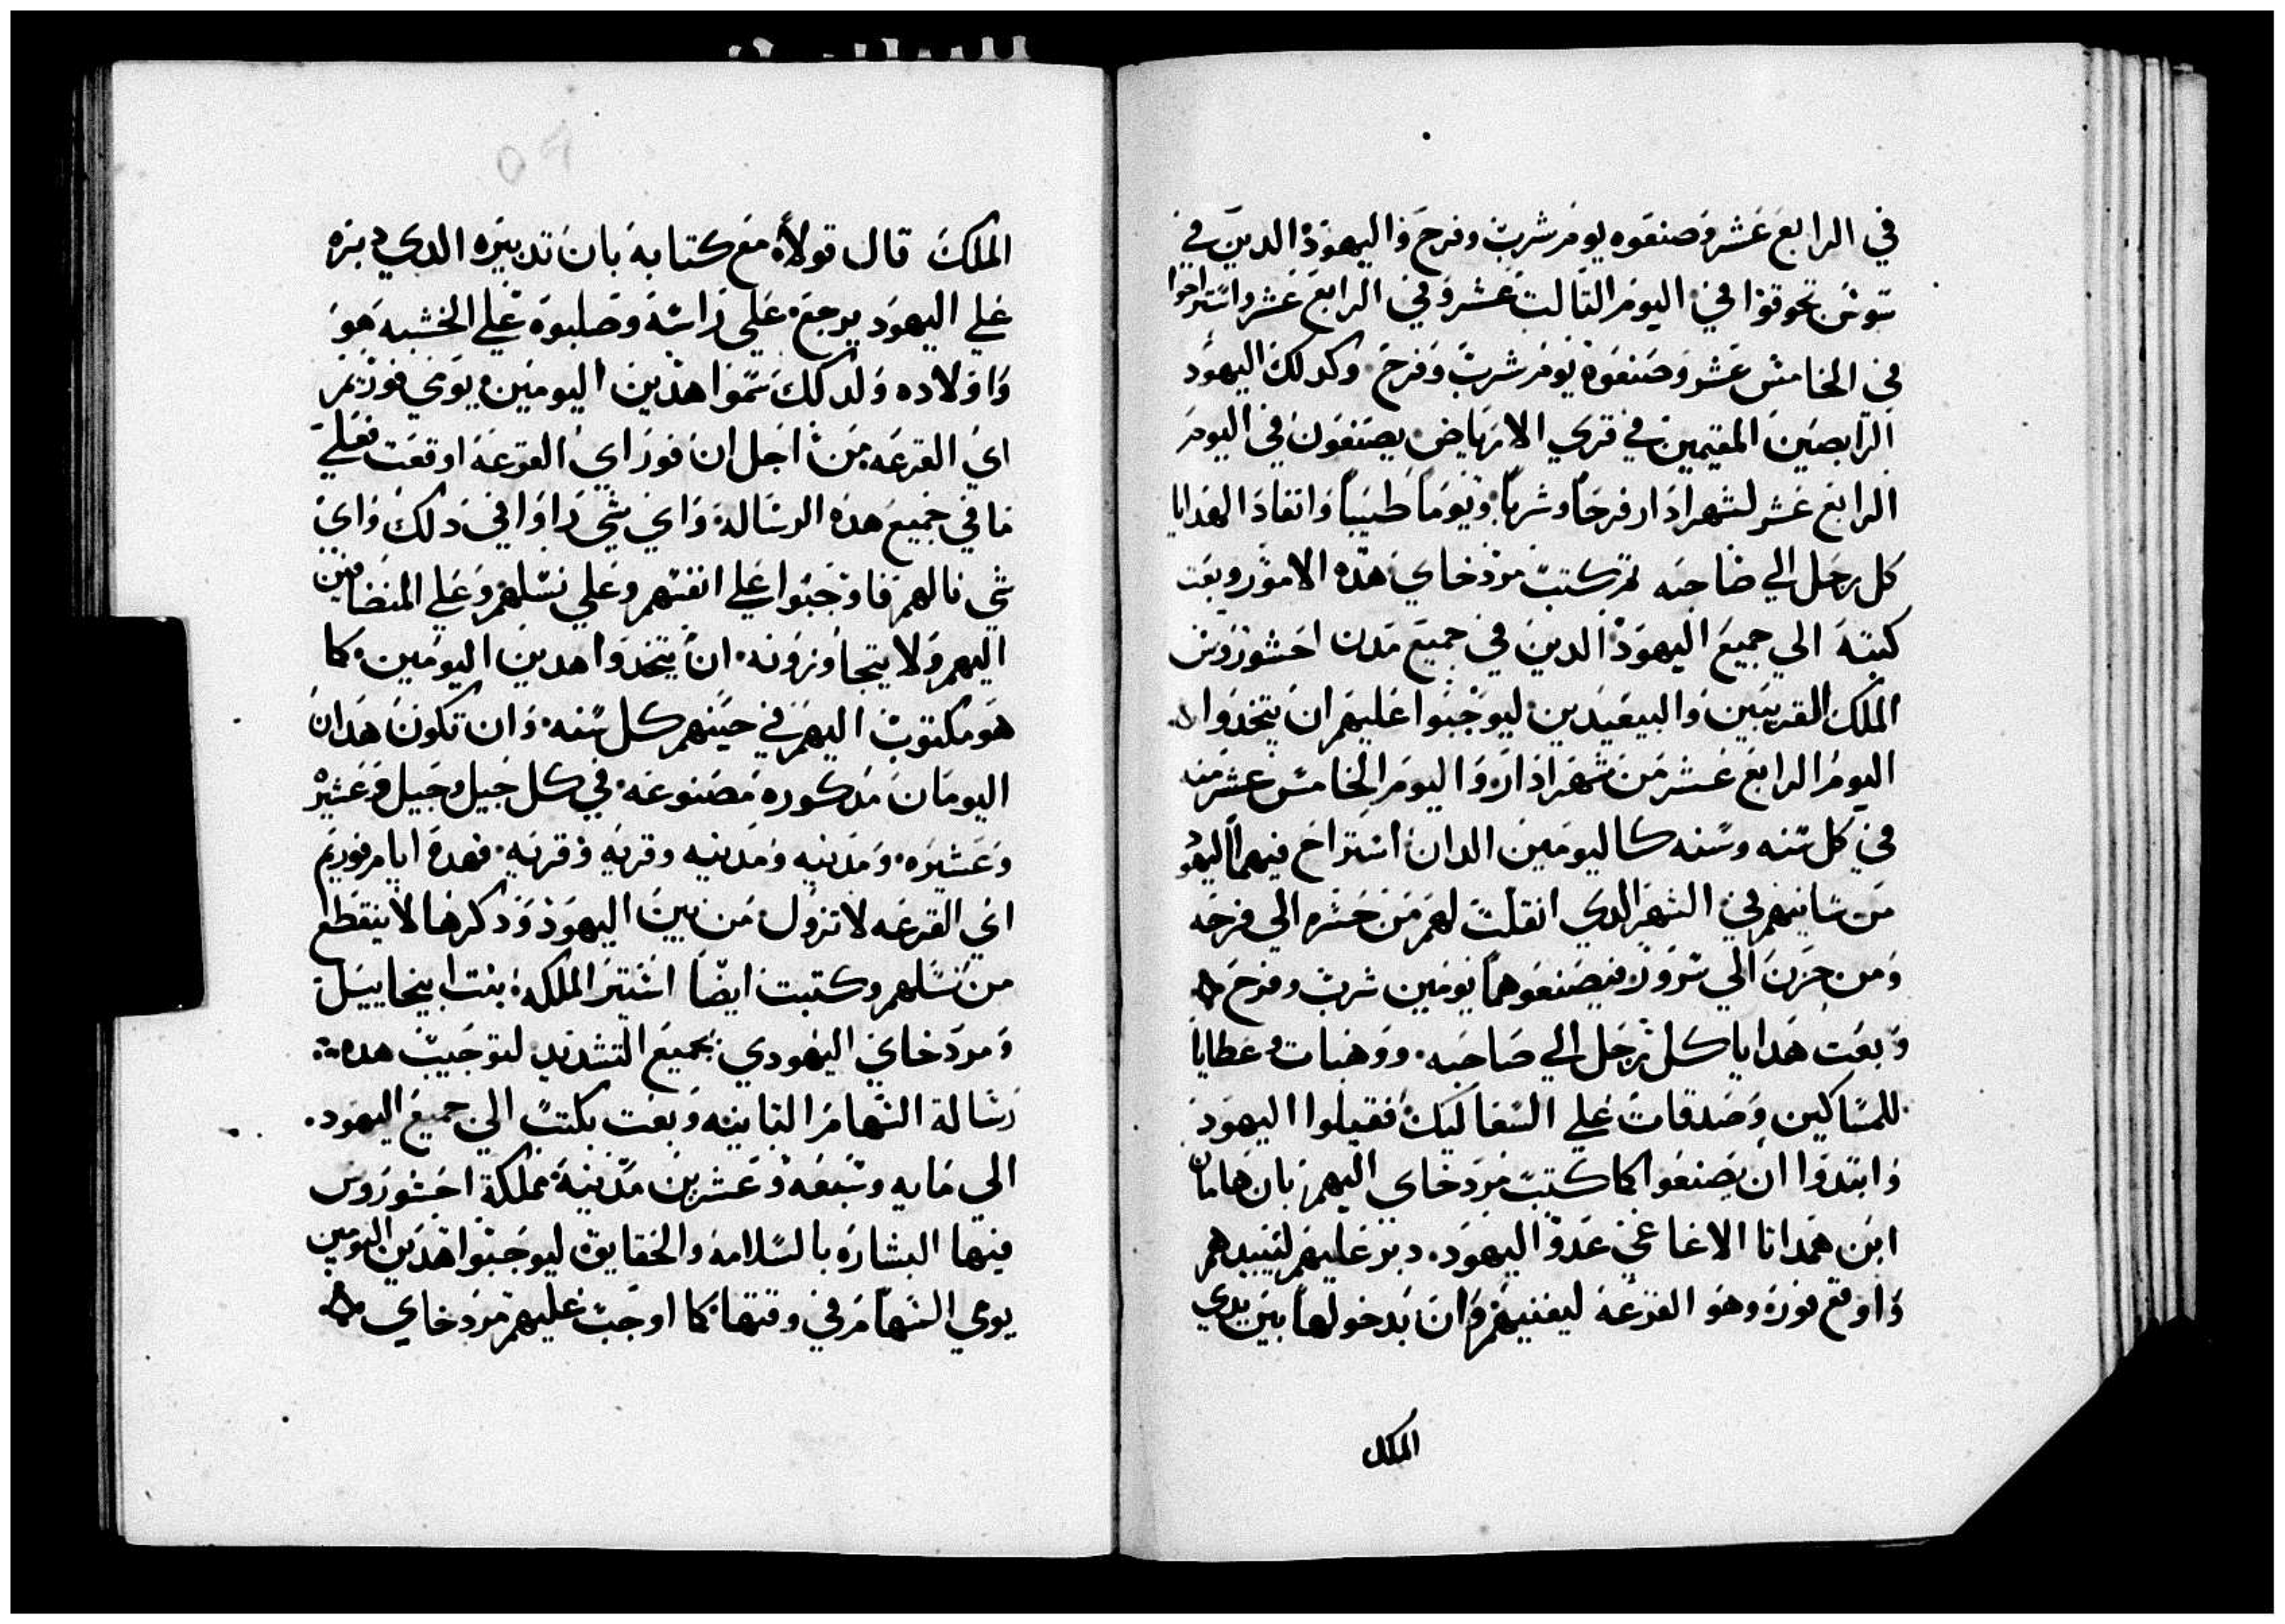 في الرابع عشر وصنعوه يوم شرب وفرح واليهود الدين في
سوس تجوقوا في اليوم التالت عشر وفي الرابع عشر واستراحوا
في الخامس عشر وصنعوه يوم شرب وفرح وكدلك اليهود
الرابصين المقيمين في قري الارباض يصنعون في اليوم
الرابع عشر لشهر ادار فرحا وشربا ويوما طيبا وانفاد الهدايا
كل رجل الي صاحبه تم كتب مردخاي هده الامور وبعت
كتبه الي جميع اليهود الدين في جميع مدن احشوروس
الملك القريبين والبيعيدين ليوجبوا عليهم ان يتخدوا
اليوم الرابع عشر من شهر ادار واليوم الخامس عشر منه
في كل سنه وسنه كاليومين الدان استراح فيهما اليهود
من شانيهم في الشهر الدي انقلت لهم من حسره الي فرحه
ومن حزن الي سرور فيصنعوهما يومين شرب وفرح
وبعت هدايا كل رجل الي صاحبه ووهبات وعطايا
للمساكين وصدقات علي السعاليك فقبلوا اليهود
وابتدوا ان يصنعوا كما كتب مردخاي اليهم بان هامان
ابن همداتا الاغاغي عدو اليهود دبر عليهم ليبيدهم
واوقع فوره وهو القرعه ليفنيهم وان بدخولها بين يدي
الملك
الملك قال قولاه مع كتابه بان تدبيره الدي دبره
علي اليهود يرجع علي راسه وصلبوه علي الخشبه هو
واولاده ولدلك سموا هدين اليومين يومي فوريم
اي القرعه من اجل ان فور اي القرعه اوقعت فعلي
ما في جميع هده الرساله واي شي راوا في دلك واي
شي نالهم فاوجبوا علي انفسهم وعلي نسلهم وعلي المنضافين
اليهم ولا يتجاوزونه ان يتخدوا هدين اليومين كما
هو مكتوب اليهم في حينهم كل سنه وان تكون هدان
اليومان مدكوره مصنوعه في كل جيل وجيل وعشيره
وعشيره ومدينه ومدينه وقريه وقريه فهده ايام فوريم
اي القرعه لا تزول من بين اليهود ودكرها لا ينقطع
من نسلهم وكتبت ايضا استير الملكه بنت ابيحاييل
ومردخاي اليهودي بجميع التشديد لتوجيب هده
رسالة السهام التانيه وبعت بكتب الي جميع اليهود
الي مايه وسبعه وعشرين مدينة مملكة احشوروس
فيها البشاره بالسلامه والحقايق ليوجبوا هدين اليومين
يومي السهام في وقتها كما اوجب عليهم مردخاي